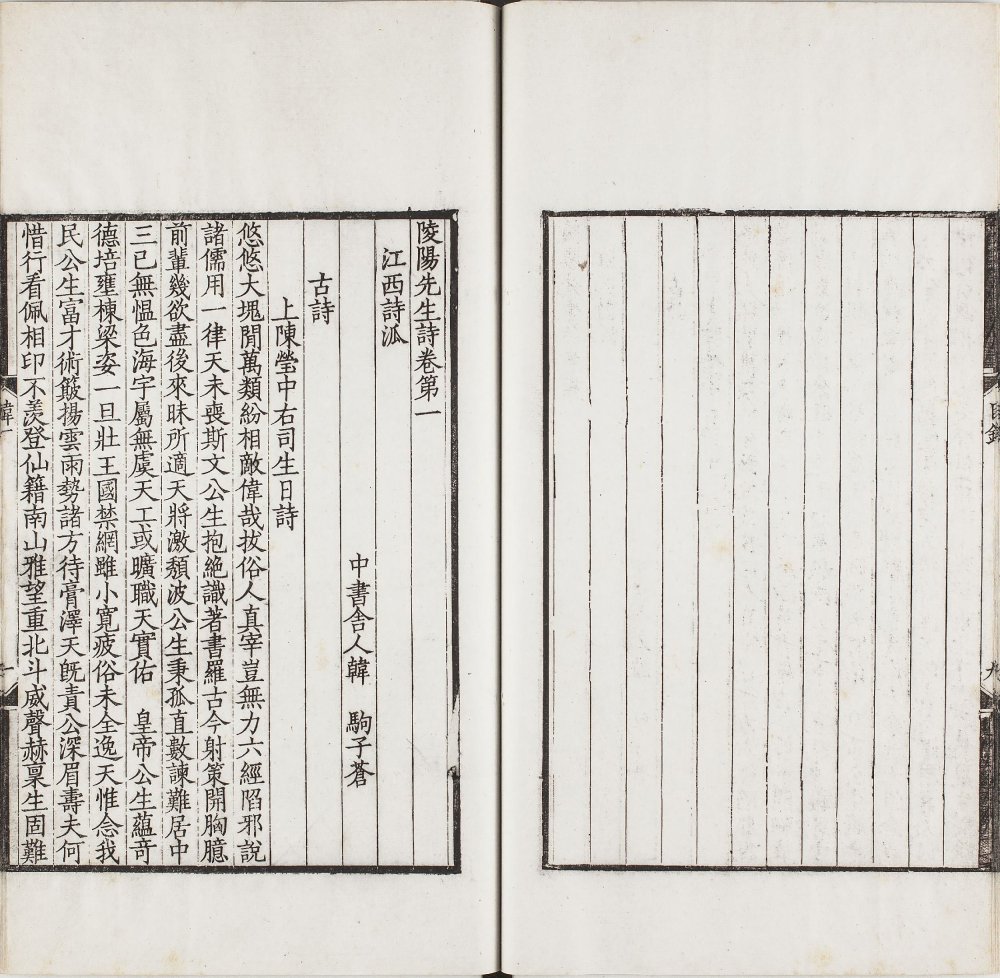 目錄
九
陵陽先生詩卷第一
江西詩泒
中書舍人韓　駒子蒼
古詩
上陳瑩中右司生日詩
悠悠大塊閒萬類紛相敵偉哉拔俗人真宰豈無力六經陷邪說
諸儒用一律天未喪斯文公生抱絕識著書羅古今射策開胸臆
前輩幾欲盡後來昧所適天將激頹波公生秉孤直數諫難居中
三已無愠色海宇屬無虞天工或曠職天實佑　皇帝公生蘊奇
德培壅棟梁姿一旦壯王國禁網雖小寬疲俗未全逸天惟念我
民公生富才術簸揚雲雨勢諸方待膏澤天旣責公深眉壽夫何
惜行看佩相印不羨登仙籍南山雅望重北斗威聲赫稟生固難
韓一
一